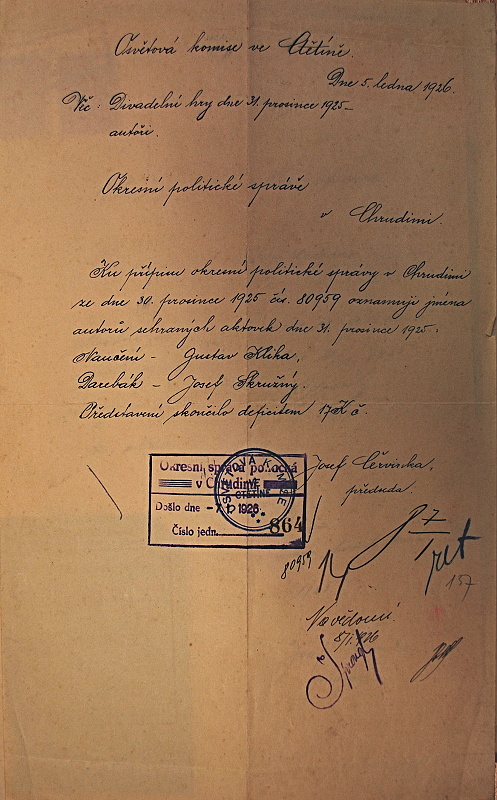 Osvětová komise ve Ctětíně.
Dne 5. ledna 1926.
Věc: Divadelní hry dne 31. prosince 1925 –
autoři.
Okresní politické správě
v Chrudimi.
Ku přípisu okresní politické správy v Chrudimi
ze dne 30. prosince 1925 čís. 80959 oznamuji jména
autorů sehraných aktovek dne 31. prosince 1925:
Naučení – Gustav Klika,
Darebák – Josef Skružný.
Představení skončilo deficitem 17 Kč.
Josef Červinka,
předseda.
Okresní správa politická
v Chrudimi
Došlo dne - 7. I. 1926
Číslo jedn. 864
OSVĚTOVÁ KOMISE
VE
CTĚTÍNĚ
80959
7
1
157
Na vědomí
8/I. 1926